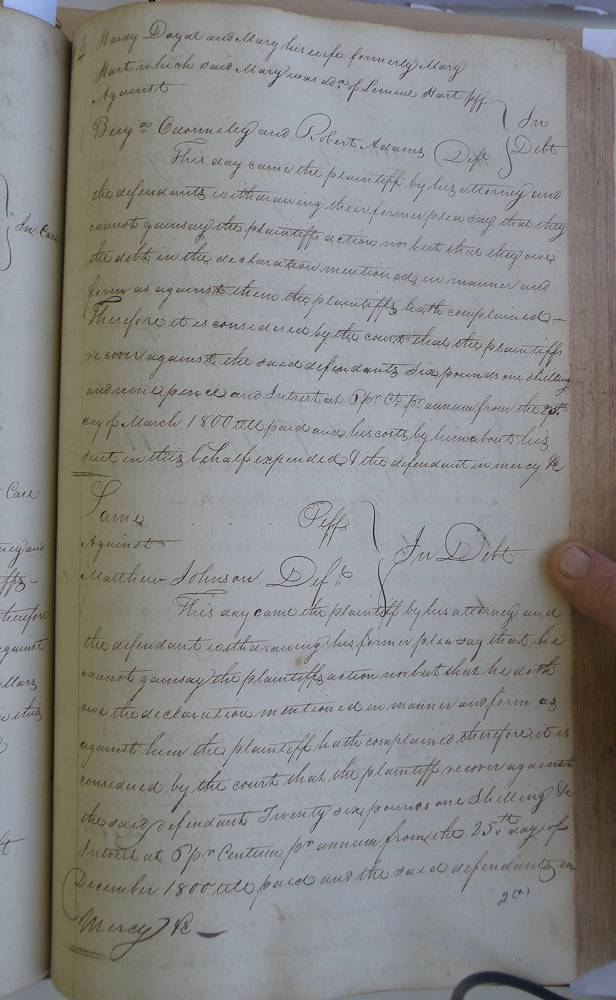 Hardy Doyal and Mary his wife formerly Mary
Hart which said Mary was adx. of Lemuel Hart pff
Against
In
Debt
Benja. and Robert Adams Defts
This day came the plaintiff by his attorney and
the defendants withdrawing their former plea say that they
cannot gainsay the plaintiffs action nor but that they owe
the debt in the declaration mentioned in manner and
form as against them the plaintiffs hath complained —
Therefore it is considered by the court that the plaintiffs
recover against the said defendants Six pounds one shilling
and nine pence and Intrest at 6 pr. Ct. pr. annum from the 25th
day of March 1800 till paid and his costs by him about his
suit in this behalf expended & the defendant in mercy &c
Same Peff
Against
In Debt
Matthew Johnson Deft.
This day came the plaintiff by his attorney and
the defendant withdrawing his former plea say that he
cannot gainsay the plaintiffs action nor but that he doth
owe the declaration mentioned in manner and form as
against him the plaintiff hath complained therefore it is
considered by the court that the plaintiff recover against
the said defendant Twenty six pounds one Shilling &c
Intrest at 6 pr Centum pr annum from the 25th day of
December 1800 till paid and the said defendants in
Mercy &c —
In Case
Case
and
ffs —
therefore
against
this